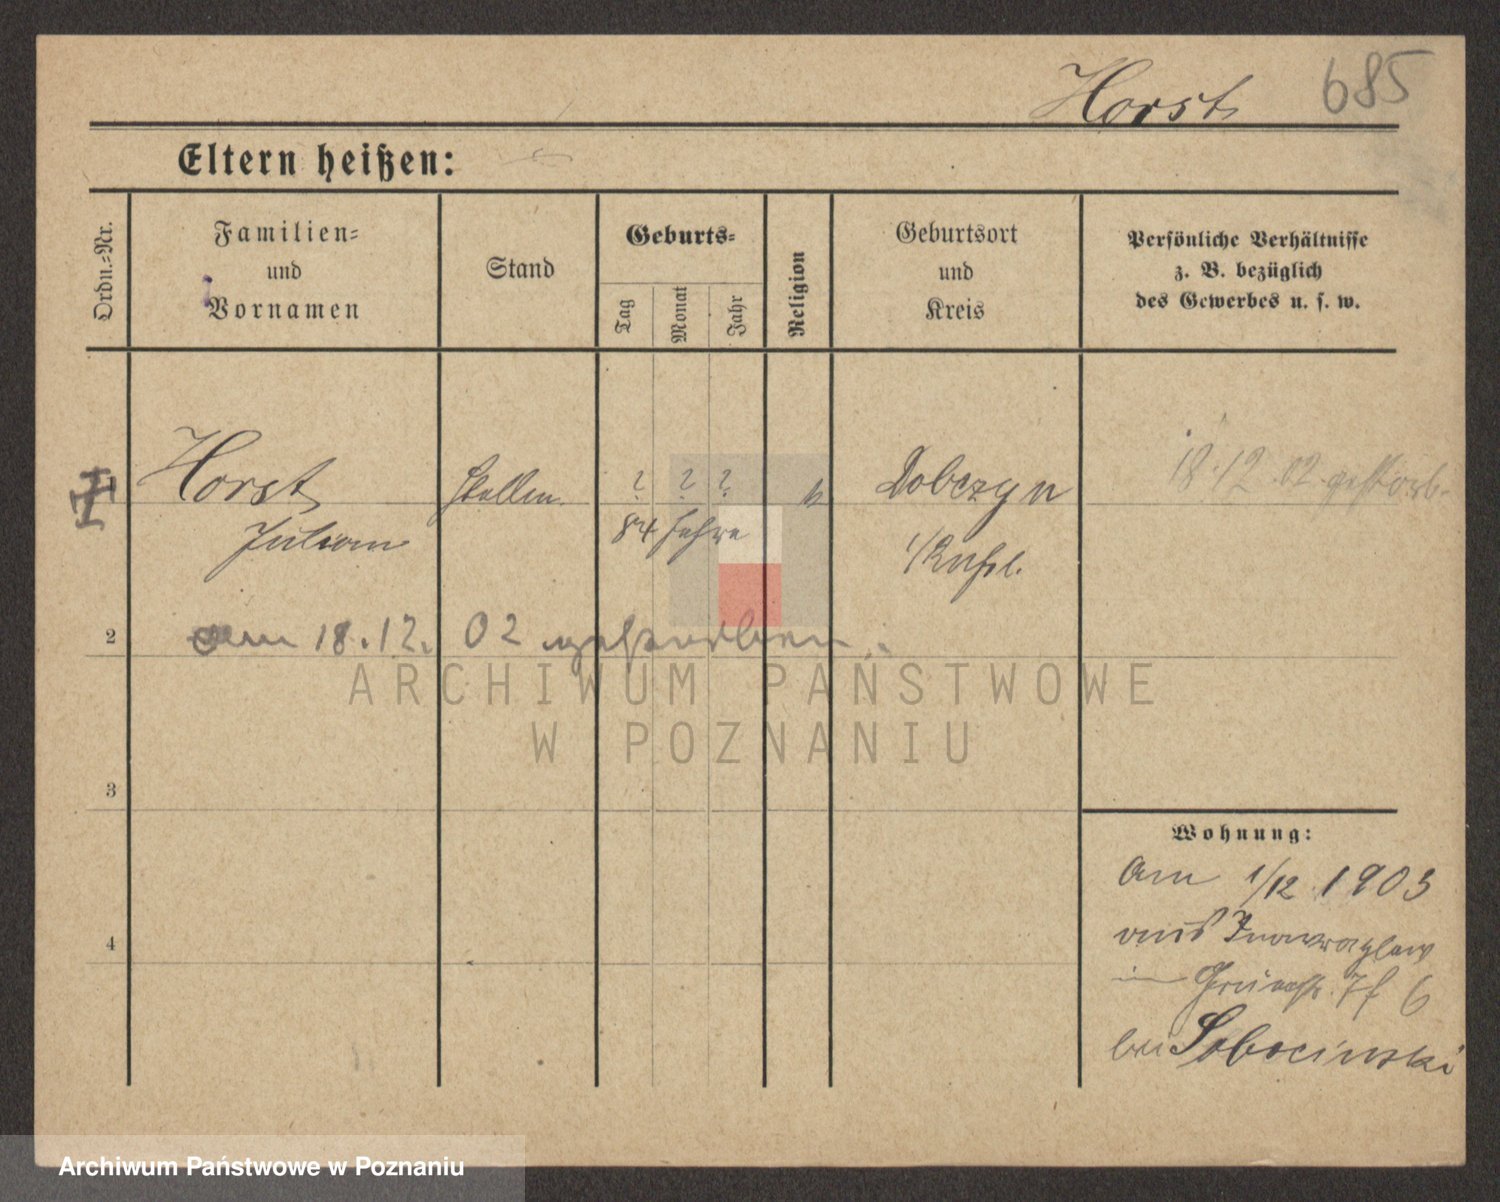 Horst 685
Eltern heißen:
Ordn.-Nr.
Familien-
und
Vornamen
Stand
Geburts-
Tag
Monat
Jahr
Religion
Geburtsort
und
Kreis
Persönliche Verhältnisse
z. B. bezüglich
des Gewerbes u. s. w.
1 Horst ? ? ? Dobczyn 18.12.02 gestorb.
Julian 84 Jahre
2 am 18.12.02 gestorben.
3
4
Wohnung:
Am 1/12 1903
aus Inowrazlaw
bei Sobocinski
ARCHIWUM PAŃSTWOWE
W POZNANIU
Archiwum Państwowe w Poznaniu